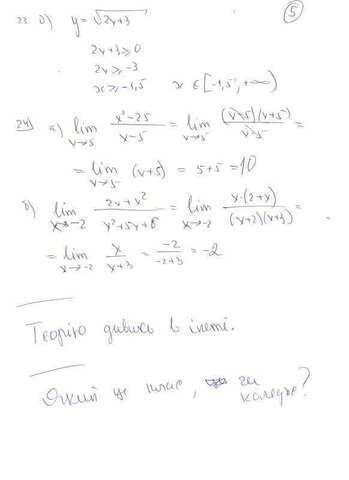 5
23 б) y = √2x+3
2x+3 ≥ 0
2x ≥ -3
x ≥ -1,5 x ∈ [-1,5; +∞)
24) а) lim x→5 (x²-25)/(x-5) = lim x→5 ((x-5)(x+5))/(x-5) =
= lim x→5 (x+5) = 5+5 = 10
б) lim x→-2 (2x+x²)/(x²+5x+6) = lim x→-2 (x·(2+x))/((x+2)(x+3)) =
= lim x→-2 x/(x+3) = -2/(-2+3) = -2
Теорію дивись в інеті.
Який це клас, чи
коледж?